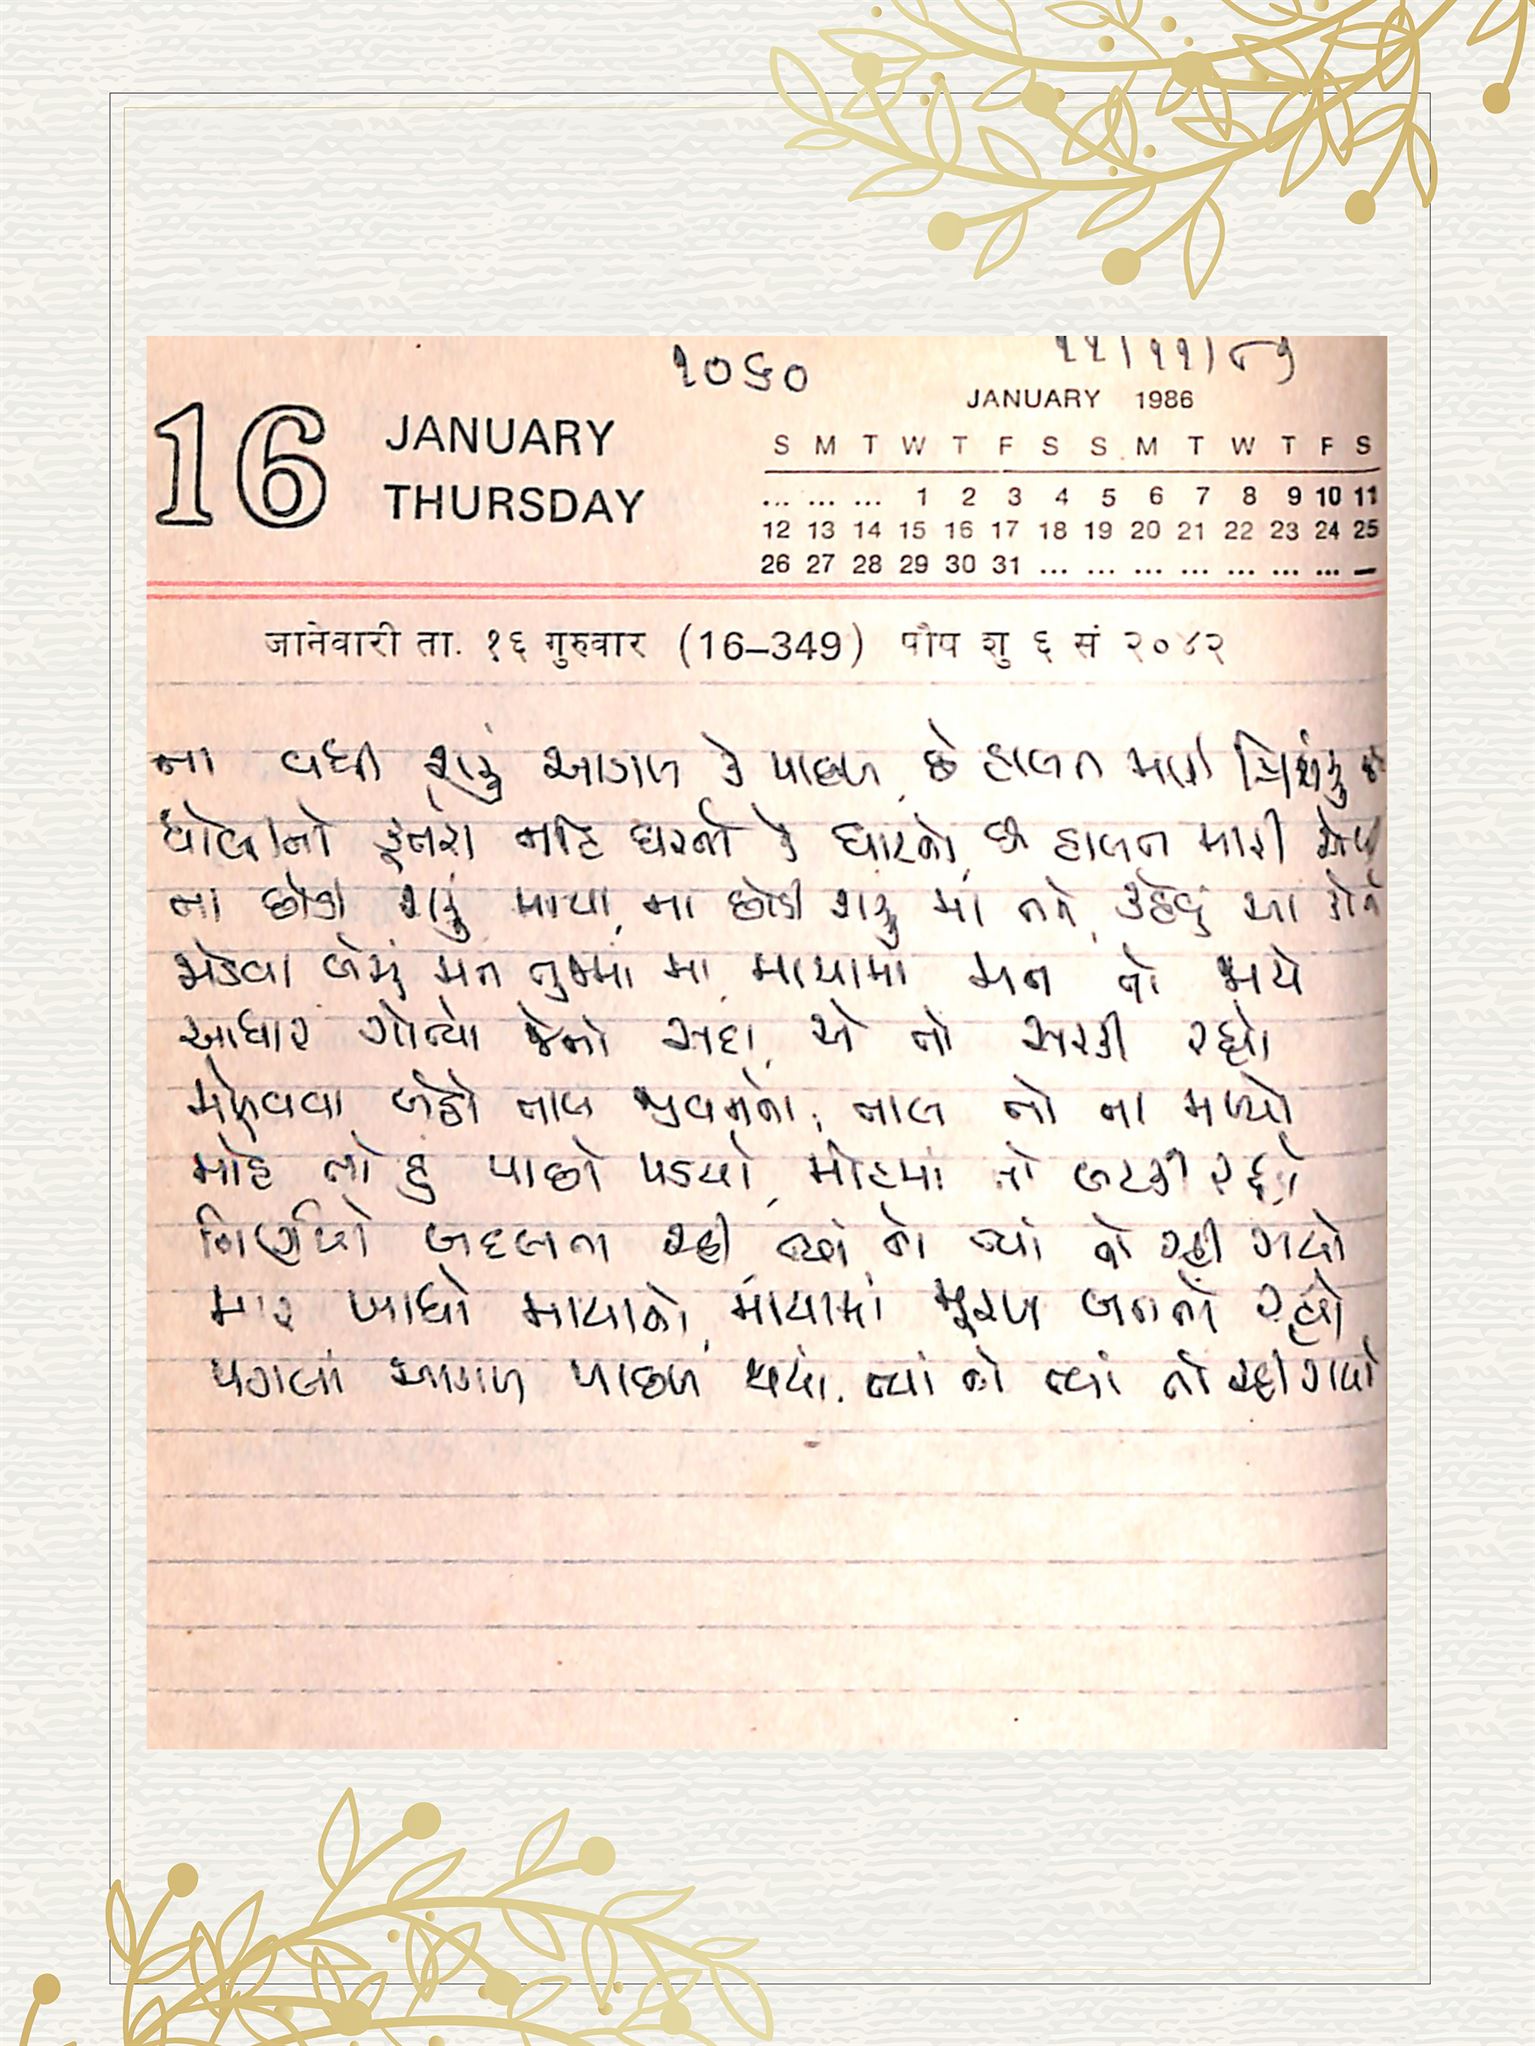 ૧૦૬૦
૨૨/૧૧/૮૭
16
JANUARY
THURSDAY
JANUARY 1986
S M T W T F S S M T W T F S
... ... ... 1 2 3 4 5 6 7 8 9 10 11
12 13 14 15 16 17 18 19 20 21 22 23 24 25
26 27 28 29 30 31 ... ... ... ... ... ... ... ...
जानेवारी ता. १६ गुरुवार (16–349) पौष शु ६ सं २०४२
ના વધી શકું આગળ કે પાછળ, છે હાલત મારી ત્રિશંકુ
ધોબીનો કૂતરો નહિ ઘરનો કે ઘાટનો, છે હાલત મારી
ના છોડી શકું માયા, ના છોડી શકું મા તને, કહેવું આ કોને
જોડવા બેસું મન તુજમાં મા, માયામાં મન તો જાયે
આધાર ગોત્યો જેનો સદા, એ તો સરકી રહ્યો
મેળવવા બેઠો તાલ જીવનનો, તાલ તો ના મળ્યો
મોહે તો હું પાછો પડયો, મોહમાં તો લટકી રહ્યો
નિર્ણયો બદલતા રહી, ત્યાં ને ત્યાં તો રહી ગયો
માર ખાધો માયાનો, માયામાં મૂરખ બનતો રહ્યો
પગલાં આગળ પાછળ થયાં, ત્યાં ને ત્યાં તો રહી ગયો